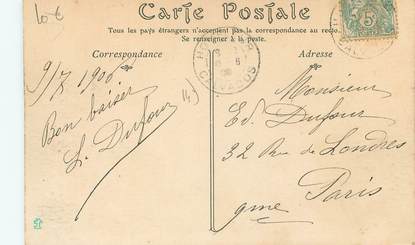 10€
Carte Postale
Tous les pays étrangers n'acceptent pas la correspondance au recto.
Se renseigner à la poste.
Correspondance
Adresse
9/7 1906
Bon baiser
L. Dufour
CALVADOS
Monsieur
Ed. Dufour
32 Rue de Londres
Paris
9me
5